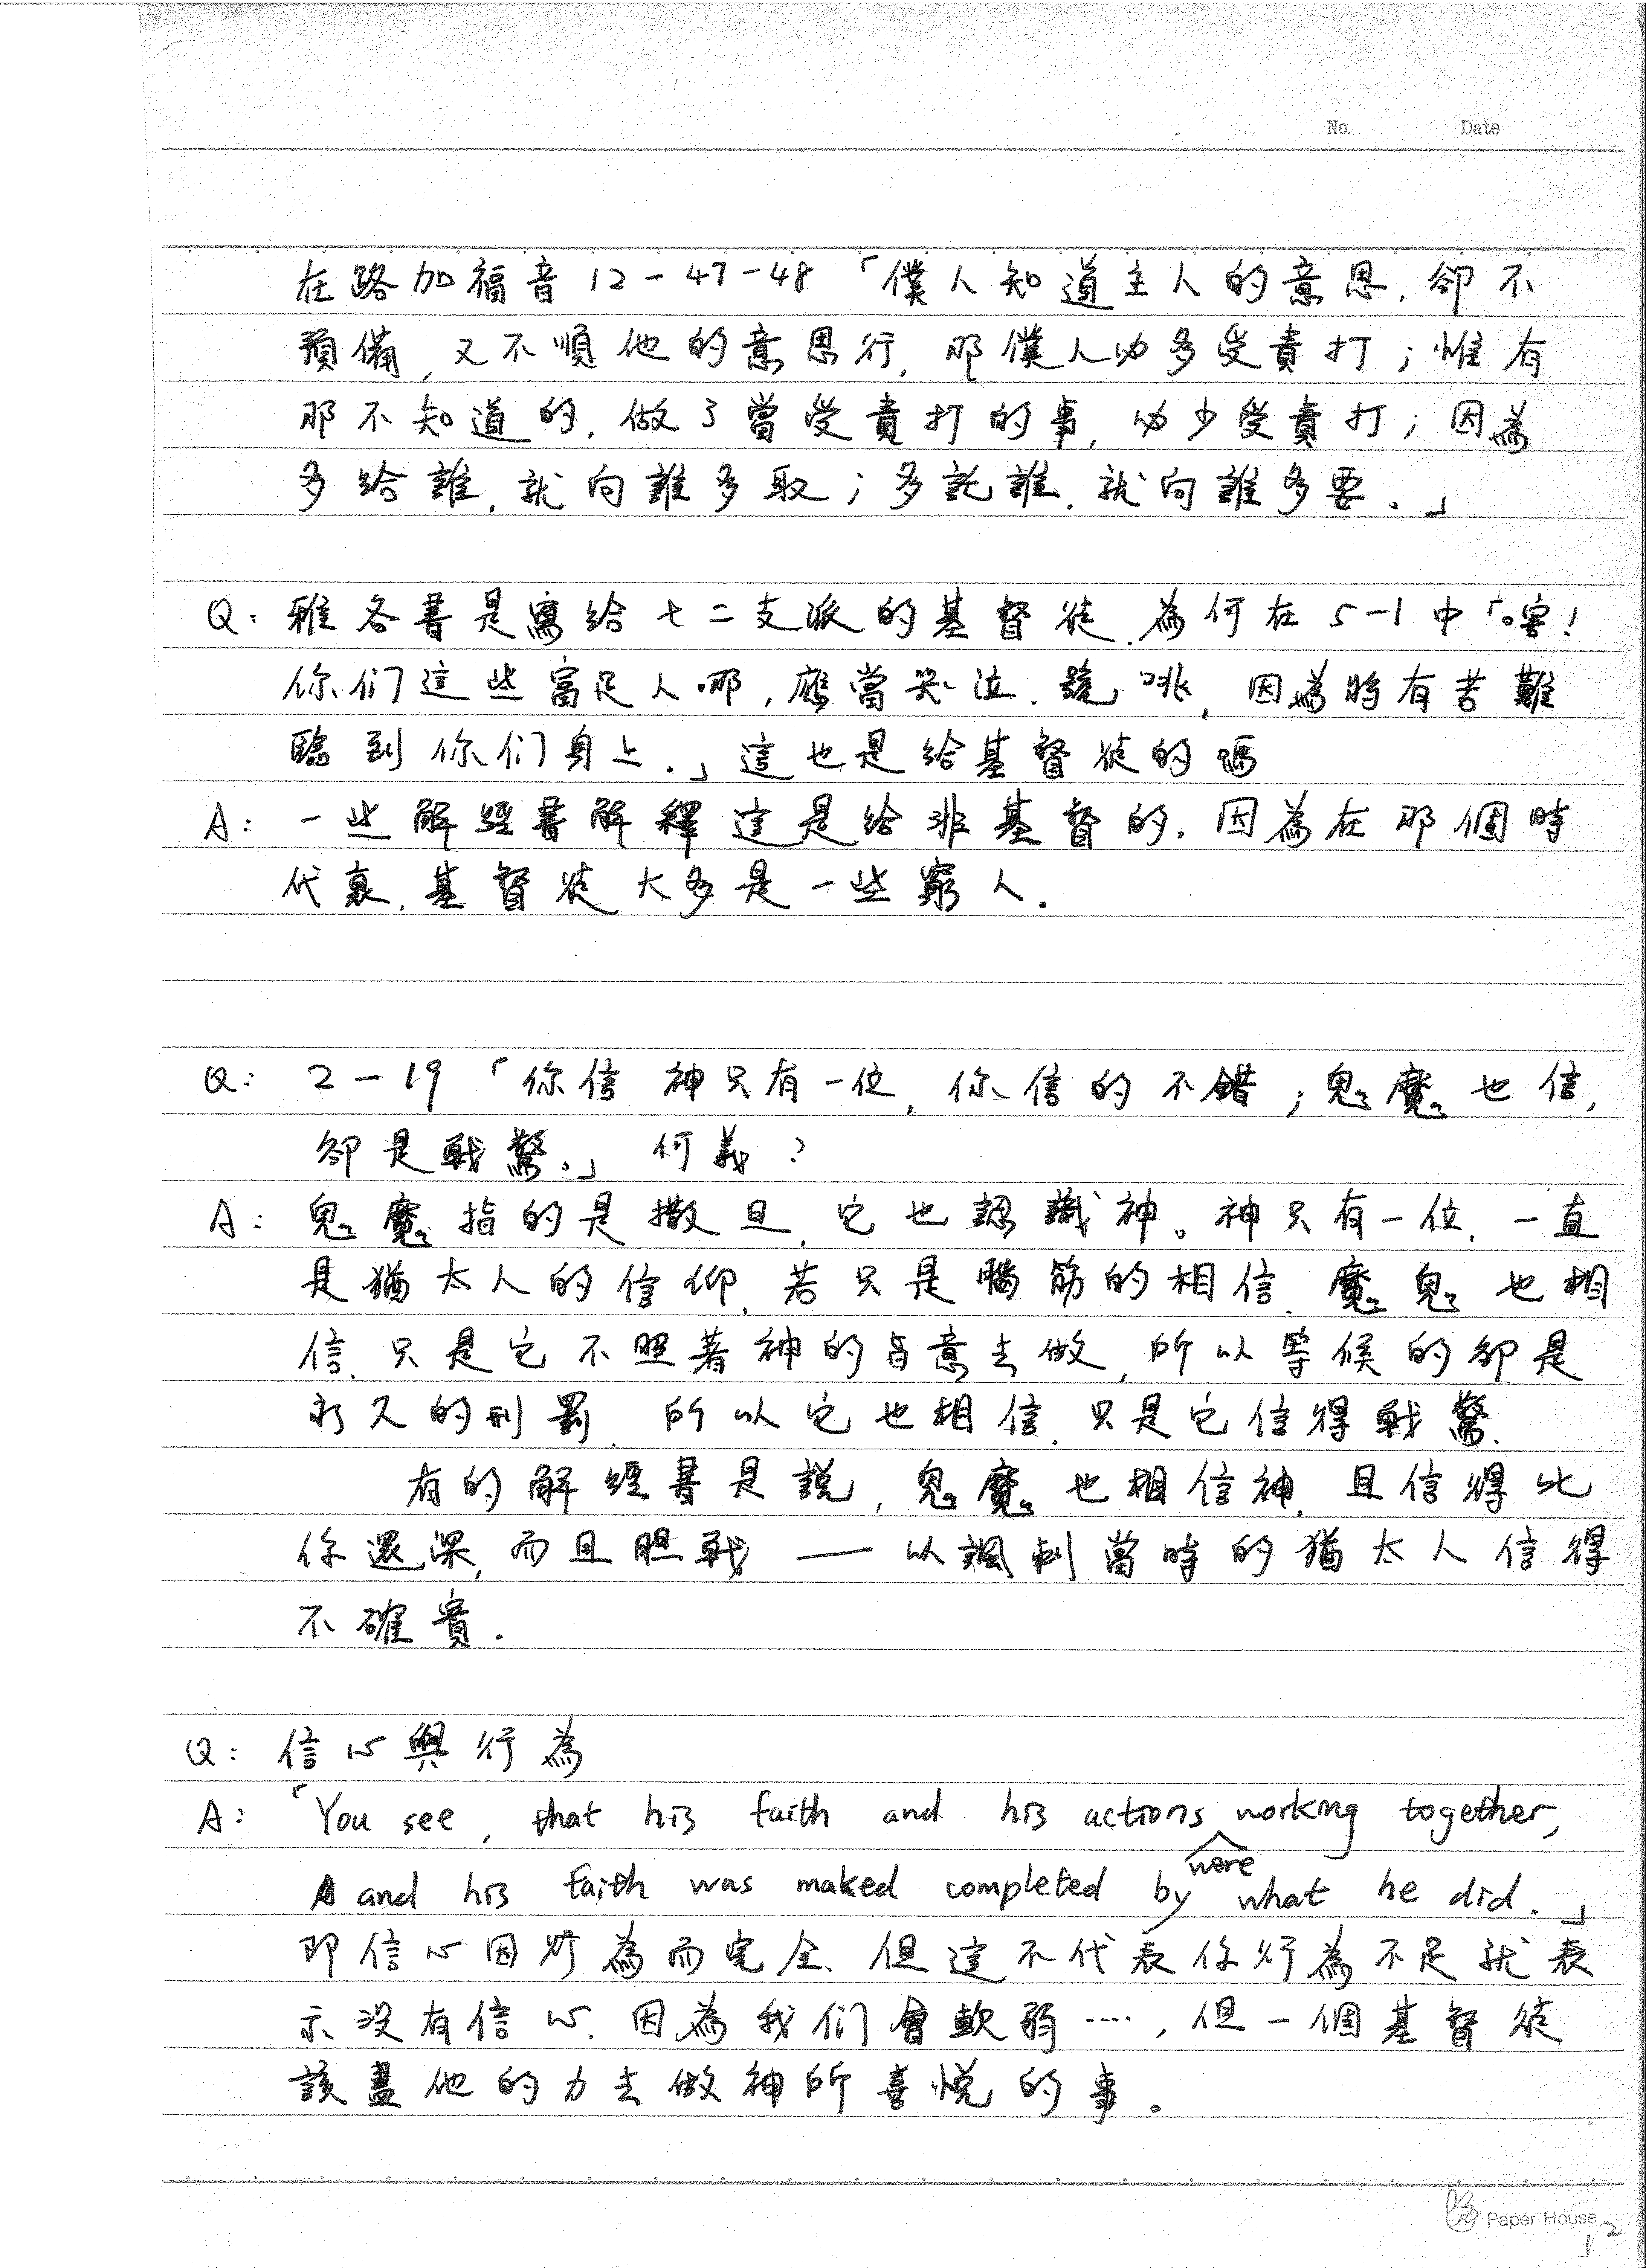 No. Date
在路加福音12-47-48「僕人知道主人的意思,卻不
預備,又不順他的意思行,那僕人必多受責打;惟有
那不知道的,做了當受責打的事,必少受責打;因為
多給誰,就向誰多取;多託誰,就向誰多要.」
Q: 雅各書是寫給七二支派的基督徒,為何在5-1中「嗐!
你们這些富足人哪,應當哭泣.號咷,因為將有苦難
臨到你们身上.」這也是給基督徒的嗎
A: 一些解經書解釋這是給非基督的.因為在那個時
代裏,基督徒大多是一些窮人.
Q: 2-19「你信神只有一位,你信的不錯;鬼魔也信,
卻是戰驚。」何義?
A: 鬼魔指的是撒旦,它也認識神。神只有一位,一直
是猶太人的信仰,若只是腦筋的相信,魔鬼也相
信,只是它不照著神的旨意去做,所以等候的卻是
永久的刑罰,所以它也相信,只是它信得戰驚.
有的解經書是說,鬼魔也相信神,且信得比
你還深,而且胆戰——以諷刺當時的猶太人信得
不確實.
Q: 信心與行為
A: 「You see, that his faith and his actions were working together,
and his faith was maked completed by what he did.」
即信心因行為而完全、但這不代表你行為不足就表
示沒有信心.因為我们會軟弱……,但一個基督徒
該盡他的力去做神所喜悅的事。
Paper House
12